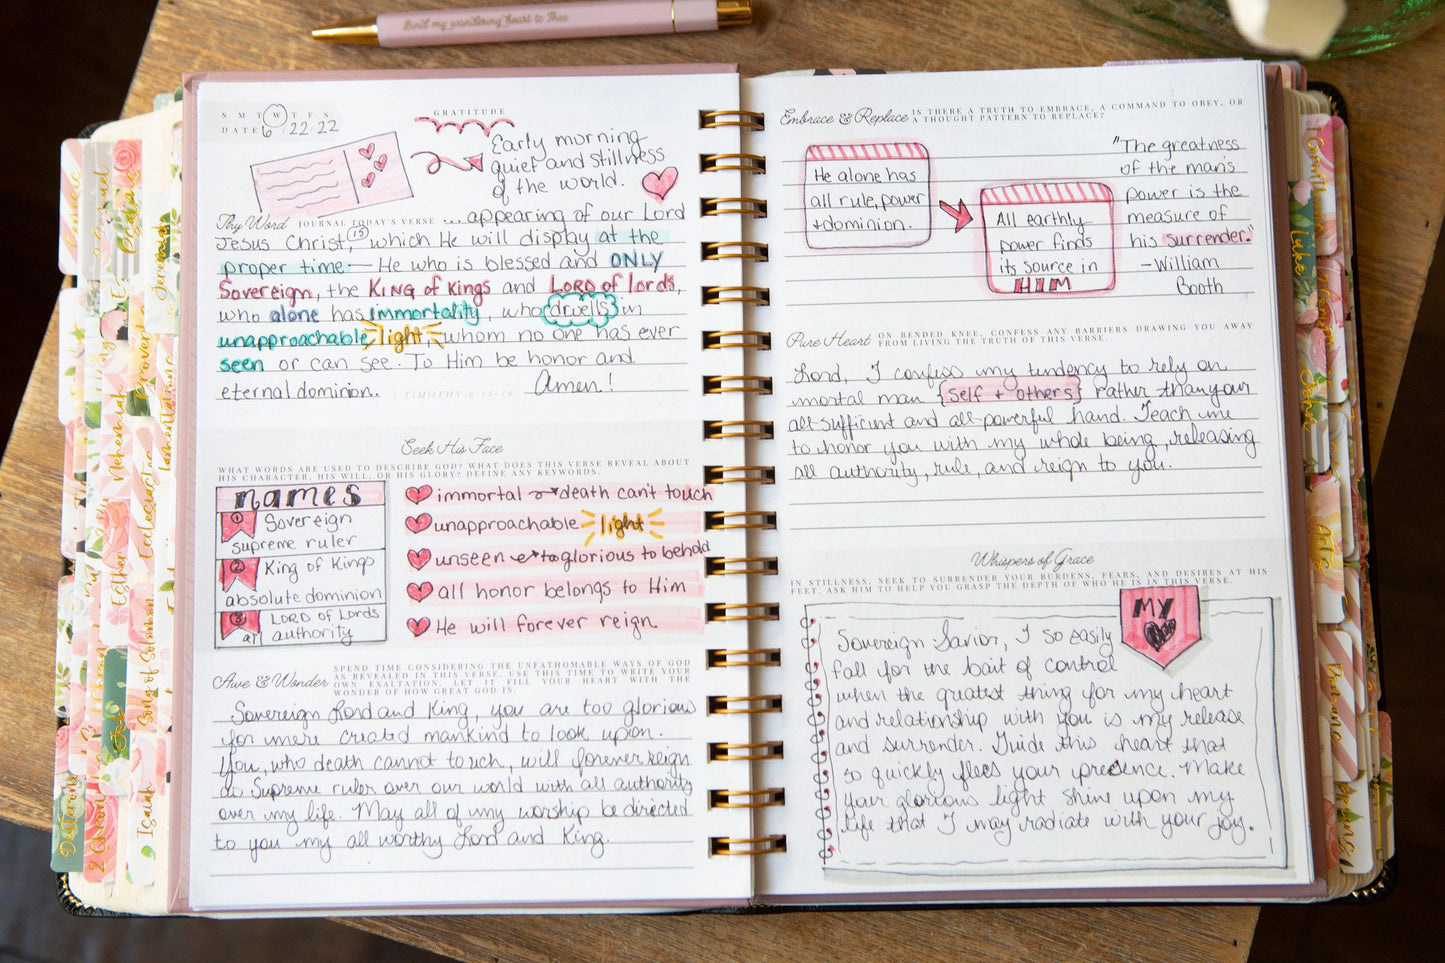 Bind my wandering heart to Thee
S M T W T F S
DATE 6/22/22
GRATITUDE
Early morning
quiet and stillness
of the world.
Thy Word JOURNAL TODAY'S VERSE ... appearing of our Lord
Jesus Christ, 15 which He will display at the
proper time – He who is blessed and ONLY
Sovereign, the KING of KINGS and LORD of lords,
who alone has immortality, who dwells in
unapproachable light, whom no one has ever
seen or can see. To Him be honor and
eternal dominion. 1 TIMOTHY 6:15-16 Amen!
Seek His Face
WHAT WORDS ARE USED TO DESCRIBE GOD? WHAT DOES THIS VERSE REVEAL ABOUT
HIS CHARACTER, HIS WILL, OR HIS GLORY? DEFINE ANY KEYWORDS.
names
1 Sovereign
supreme ruler
2 King of Kings
absolute dominion
3 LORD of LORDS
all authority
immortal → death can't touch
unapproachable light
unseen → too glorious to behold
all honor belongs to Him
He will forever reign
Awe & Wonder SPEND TIME CONSIDERING THE UNFATHOMABLE WAYS OF GOD
AS REVEALED IN THIS VERSE. USE THIS TIME TO WRITE YOUR
OWN EXALTATION. LET IT FILL YOUR HEART WITH THE
WONDER OF HOW GREAT GOD IS.
Sovereign Lord and King, you are too glorious
for mere created mankind to look upon.
You, who death cannot touch, will forever reign
as Supreme ruler over our world with all authority
over my life. May all of my worship be directed
to you my all worthy Lord and King.
Embrace & Replace IS THERE A TRUTH TO EMBRACE, A COMMAND TO OBEY, OR
A THOUGHT PATTERN TO REPLACE?
He alone has
all rule, power
+ dominion.
All earthly
power finds
its source in
HIM
"The greatness
of the man's
power is the
measure of
his surrender."
- William
Booth
Pure Heart ON BENDED KNEE, CONFESS ANY BARRIERS DRAWING YOU AWAY
FROM LIVING THE TRUTH OF THIS VERSE.
Lord, I confess my tendency to rely on
mortal man {self + others} rather than your
all sufficient and all-powerful hand. Teach me
to honor you with my whole being, releasing
all authority, rule, and reign to you.
Whispers of Grace
IN STILLNESS, SEEK TO SURRENDER YOUR BURDENS, FEARS, AND DESIRES AT HIS
FEET. ASK HIM TO HELP YOU GRASP THE DEPTH OF WHO HE IS IN THIS VERSE.
MY
Sovereign Savior, I so easily
fall for the bait of control
when the greatest thing for my heart
and relationship with you is my release
and surrender. Guide this heart that
so quickly flees your presence. Make
your glorious light shine upon my
life that I may radiate with your joy.
Jeremiah
Proverbs
Nehemiah
Lamentations
Ecclesiastes
Esther
Song of Solomon
Job
Isaiah
2 Chron
Luke
John
Acts
Romans